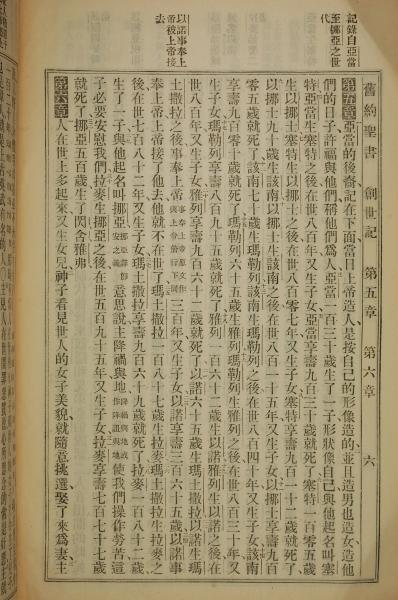 記錄自亞當
至挪亞之世
代
以諾事奉上
帝被上帝接
去
舊約聖書 創世記 第五章 第六章 六
第五章亞當的後裔記在下面當日上帝造人是按自己的形像造的並且造男也造女造他
們的日子許福與他們稱他們爲人亞當一百三十歲生了一子形狀像自己與他起名叫塞
特亞當生塞特之後在世八百年又生子女亞當享壽九百三十歲就死了塞特一百零五歲
生以挪士塞特生以挪士之後在世八百零七年又生子女塞特享壽九百一十二歲就死了
以挪士九十歲生該南以挪士生該南之後在世八百一十五年又生子女以挪士享壽九百
零五歲就死了該南七十歲生瑪勒列該南生瑪勒列之後在世八百四十年又生子女該南
享壽九百零十歲就死了瑪勒列六十五歲生雅列瑪勒列生雅列之後在世八百三十年又
生子女瑪勒列享壽八百九十五歲就死了雅列一百六十二歲生以諾雅列生以諾之後在
世八百年又生子女雅列享壽九百六十二歲就死了以諾六十五歲生瑪土撒拉以諾生瑪
土撒拉之後事奉上帝三百年又生子女以諾享壽三百六十五歲以諾事
奉上帝上帝接了他去他就不在世了瑪土撒拉一百八十七歲生拉麥瑪土撒拉生拉麥之
後在世七百八十二年又生子女瑪土撒拉享壽九百六十九歲就死了拉麥一百八十二歲
生了一子與他起名叫挪亞意思說主降禍與地使我們操作勞苦這
子必要安慰我們拉麥生挪亞之後在世五百九十五年又生子女拉麥享壽七百七十七歲
就死了挪亞五百歲生了閃含雅弗
第六章人在世上多起來又生女兒神子看見世人的女子美貌就隨意挑選娶了來爲妻主